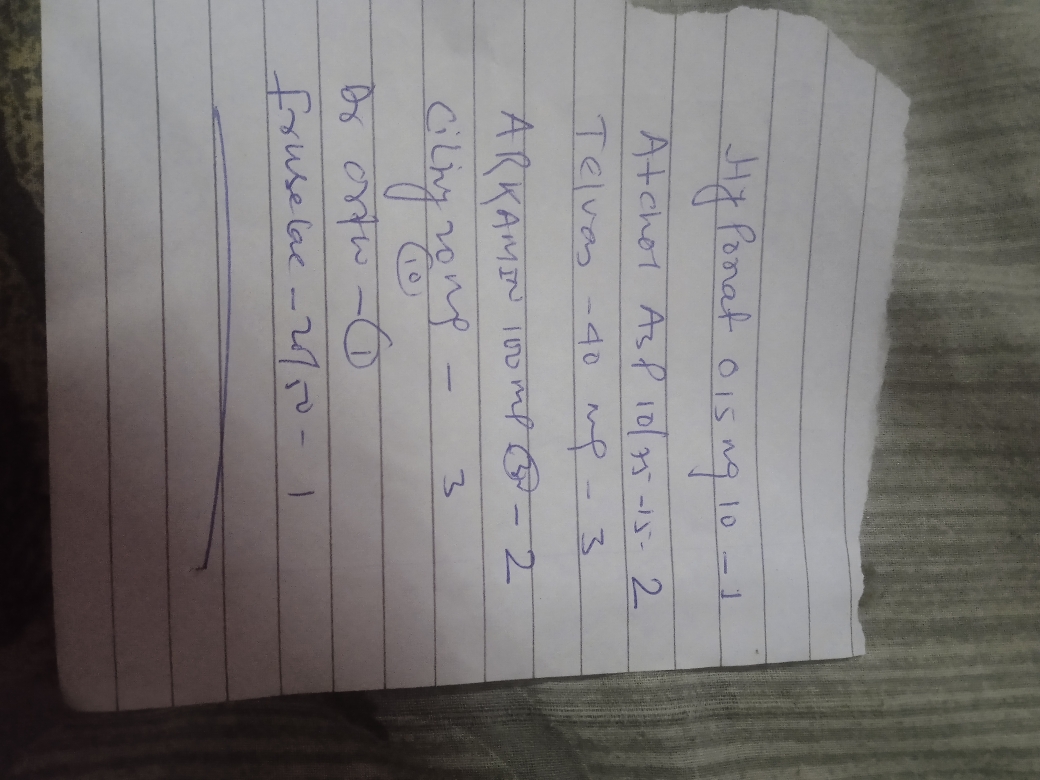 Hyporat 0.5 mg 10 - 1
Atchol Asp 10/75 - 15 - 2
Telvas - 40 mg - 3
ARKAMIN 100 mg 30 - 2
Ciliny 20 mg - 3
10
Dr ortho - 1
fruselac - 20/50 - 1